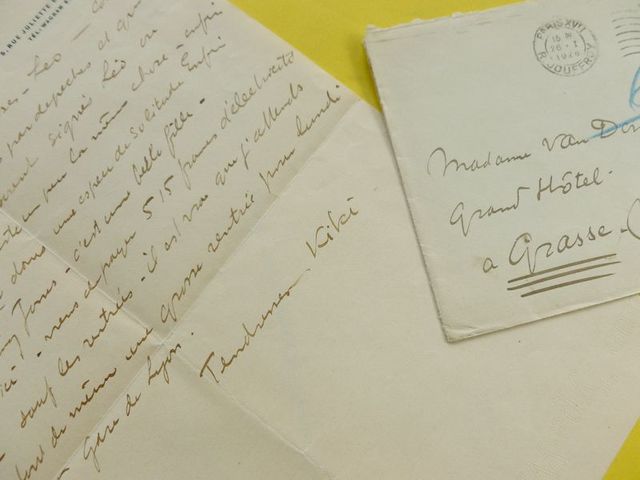 RUE JULIETTE
TÉL. WAGRAM
par depeches et
signés Léo ou
un peu la même chose - enfin
donc une espèce de solitude enfin
Jones - c'est une belle fille -
ici - nous à payer 515 francs d'électricité
sauf les rentrées - il est vrai que j'attends
tout de même une grosse rentrée pour lundi
gare de Lyon.
Tendresses Kiki
PARIS XVII
15 H
26 - I
1929
R. JOUFFROY
Madame Van Don
Grand Hôtel -
à Grasse -